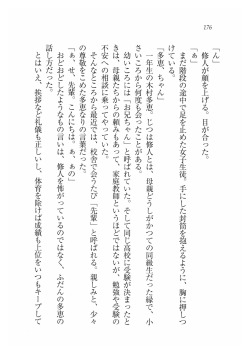 176
「ん」
　修人が顔を上げる。目が合った。
「あ」
　まだ階段の途中で足を止めた女子生徒。手にした封筒を抱えるように、胸に押しつ
けている。
「多恵、ちゃん」
　一年生の木村多恵。じつは修人とは、母親どうしがかつての同級生だった縁で、小
さいころから何度も会ったことがある。
　幼いころには「お兄ちゃん」と呼ばれていた。そして同じ高校に受験が決まったと
きは、母親たちからの頼みもあって、家庭教師というほどではないが、勉強や受験の
不安への相談に乗ってやっていた。
　そんなところから最近では、校舎で会うたび「先輩」と呼ばれる。親しみと、少々
の尊敬をこめた多恵なりの言葉だった。
「あ、せ、先輩。こんにちは、あ、あの」
　おどおどしたようなもの言いは、修人を怖がっているのではなく、ふだんの多恵の
話し方だった。
　とはいえ、挨拶など礼儀も正しいし、体育を除けば成績も上位をいつもキープして